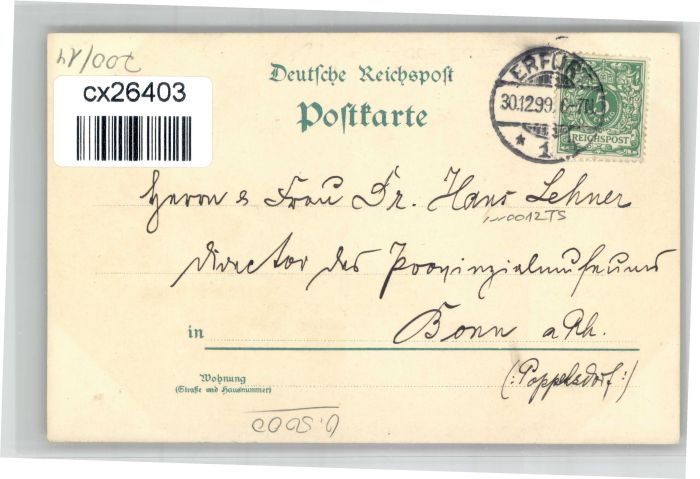 200/14
cx26403
Deutsche Reichspost
Postkarte
ERFURT
30.12.99. 6-7N.
* 1
5
REICHSPOST
Herrn & Frau Dr. Hans Lehner
0012TS
Director des Provinzialmuseums
in Bonn a Rh.
(:Poppelsdorf:)
Wohnung
(Straße und Hausnummer)